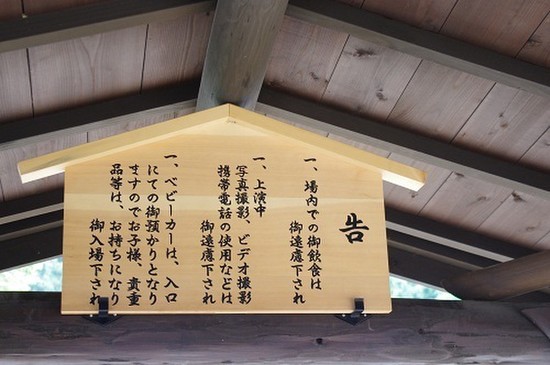 告
一、場内での御飲食は
御遠慮下され
一、上演中
写真撮影、ビデオ撮影
携帯電話の使用などは
御遠慮下され
一、ベビーカーは、入口
にての御預かりとなり
ますのでお子様、貴重
品等は、お持ちになり
御入場下され